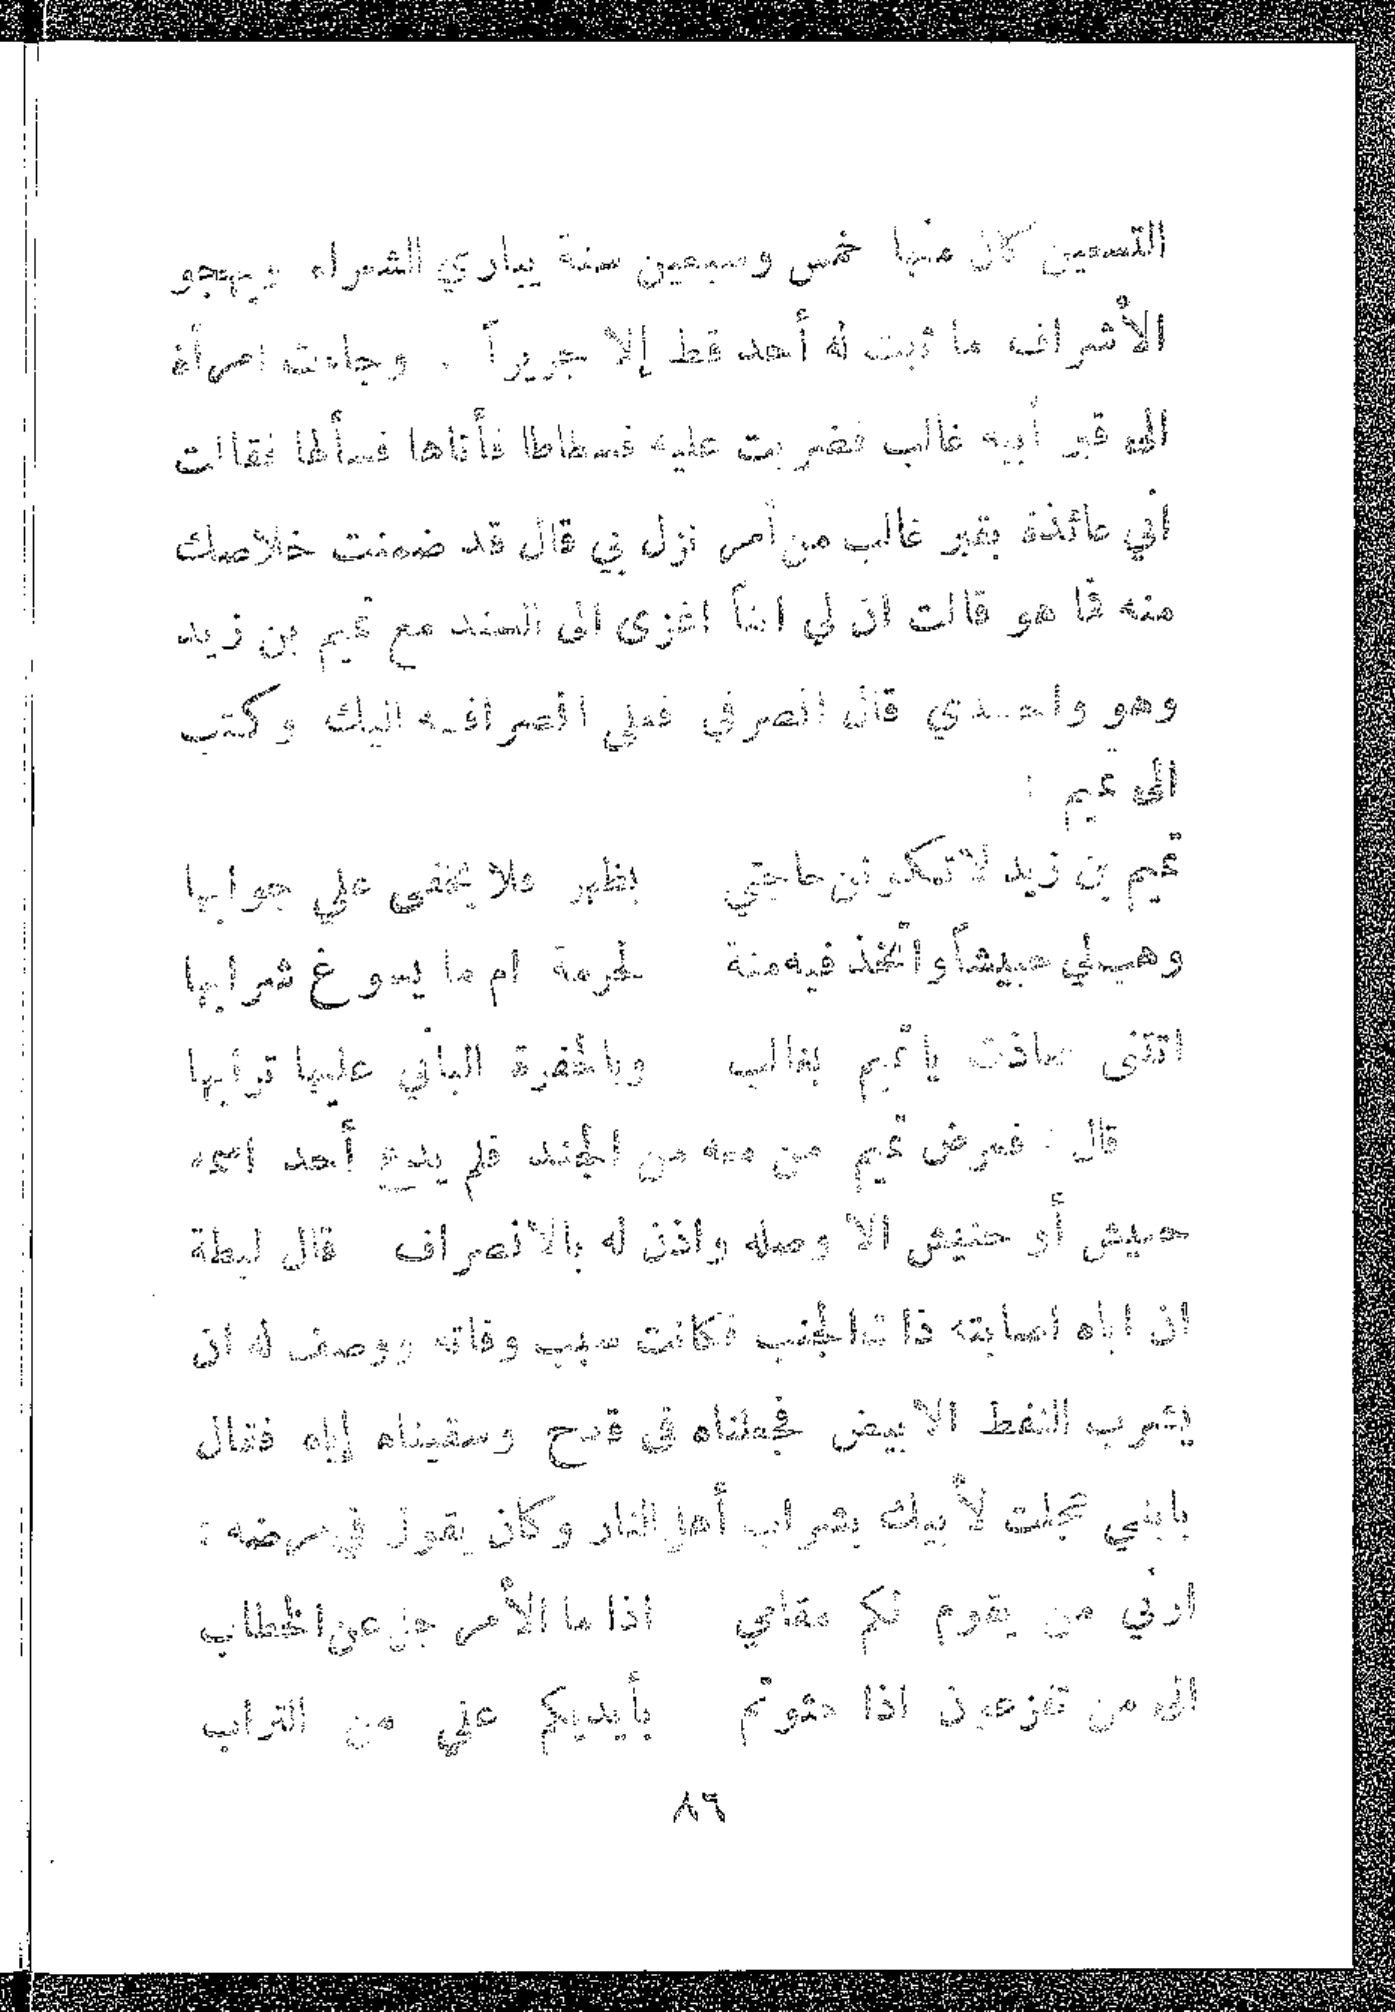 التسعين كان منها خمس وسبعين سنة يباري الشعراء ويهجو
الأشراف ما ثبت له أحد قط إلا جريراً . وجاءت امرأة
الى قبر أبيه غالب فضربت عليه فسطاطا فأتاها فسألها فقالت
اني عائذة بقبر غالب من أمر نزل بي قال قد ضمنت خلاصك
منه فما هو قالت ان لي ابناً اغزى الى السند مع تميم بن زيد
وهو واحدي قال انصرفي فعلي انصرافه اليك وكتب
الى تميم :
تميم بن زيد لا تكونن حاجتي بظهر فلا يخفى علي جوابها
وهب لي حبيشاً واتخذ فيه منة لحرمة ام ما يسوغ شرابها
اتتنى عاذت يا تميم بغالب وبالحفرة الباني عليها ترابها
قال : فعرض تميم من معه من الجند فلم يدع أحد اسمه
حبيش أو حنيش الا وصله واذن له بالانصراف قال لبطة
ان اباه اصابته ذات الجنب فكانت سبب وفاته ووصف له ان
يشرب النفط الابيض فجعلناه في قدح وسقيناه إياه فقال
يابني عجلت لأبيك بشراب أهل النار وكان يقول في مرضه :
ارني من يقوم لكم مقامي اذا ما الأمر جل عن الخطاب
الى من تفزعون اذا حثوتم بأيديكم علي من التراب
٨٦